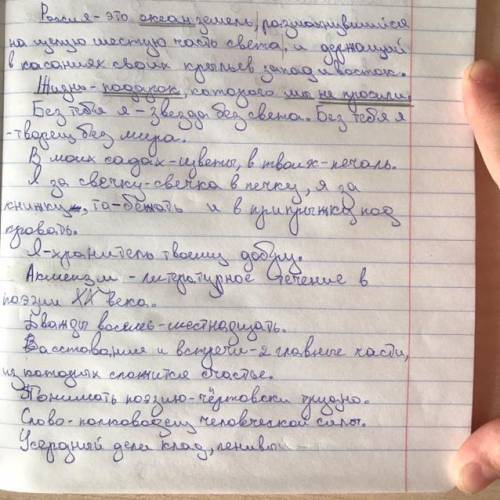 Россия-это океан земель, размахнувшийся
на целую шестую часть света, и держащий
в касаниях своих крыльев запад и восток.
Жизнь-подарок, которого мы не просили.
Без тебя я-звезда без света. Без тебя я
-творец без мира.
В моих садах-цветы, в твоих-печаль.
Я за свечку-свечка в печку, я за
книжку, та-бежать и в припрыжку под
кровать.
Я-хранитель твоему добру.
Акмеизм-литературное течение в
поэзии XX века.
Дважды восемь-шестнадцать.
Расставания и встречи-2 главные части,
из которых сложится счастье.
Понимать поэзию-чертовски трудно.
Слово-полководец человеческой силы.
Усердный дела клад,